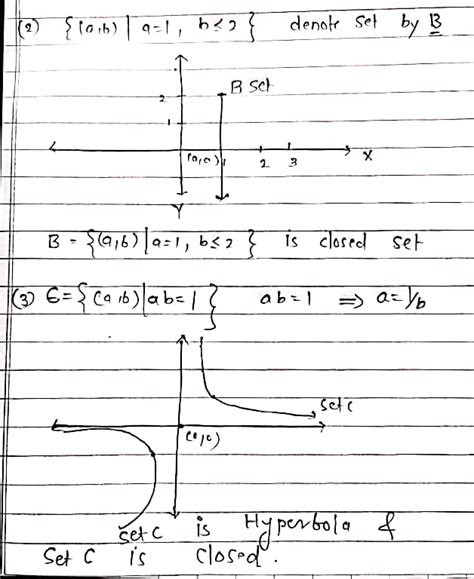 (2) {(a,b) | a=1, b≤2} denote set by B
B set
2
1
(0,0) 1 2 3 X
Y
B = {(a,b) | a=1, b≤2} is closed set
(3) C = {(a,b) | ab=1} ab=1 ⇒ a=1/b
set C
(0,0)
set C is Hyperbola &
Set C is closed.